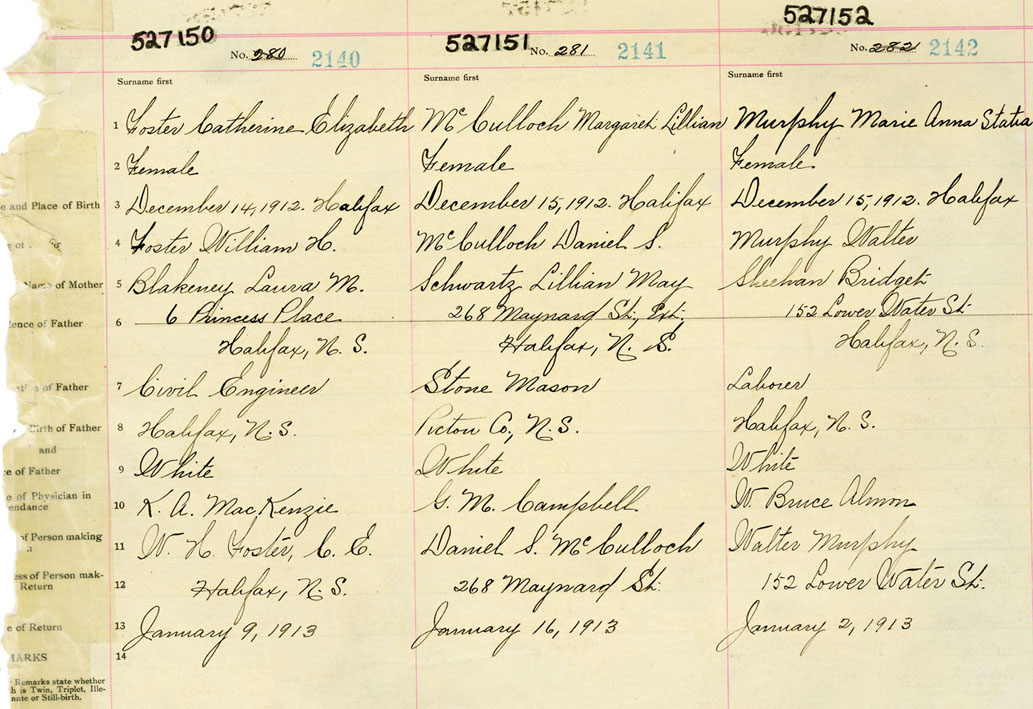 527150 527151 527152
No. 280 2140 No. 281 2141 No. 282 2142
Surname first Surname first Surname first
1 Foster Catherine Elizabeth McCulloch Margaret Lillian Murphy Marie Anna Statia
2 Female Female Female
e and Place of Birth 3 December 14, 1912. Halifax December 15, 1912. Halifax December 15, 1912. Halifax
4 Foster William H. McCulloch Daniel S. Murphy Walter
Name of Mother 5 Blakeney Laura M. Schwartz Lillian May Sheehan Bridget
dence of Father 6 6 Princess Place 268 Maynard St., Ext. 152 Lower Water St.
Halifax, N. S. Halifax, N. S. Halifax, N. S.
of Father 7 Civil Engineer Stone Mason Laborer
Birth of Father 8 Halifax, N. S. Pictou Co., N. S. Halifax, N. S.
and
e of Father 9 White White White
e of Physician in
endance 10 K. A. MacKenzie G. M. Campbell W. Bruce Almon
of Person making
11 W. H. Foster, C. E. Daniel S. McCulloch Walter Murphy
ess of Person mak-
Return 12 Halifax, N. S. 268 Maynard St. 152 Lower Water St.
e of Return 13 January 9, 1913 January 16, 1913 January 2, 1913
MARKS 14
Remarks state whether
h is Twin, Triplet, Ille-
mate or Still-birth.